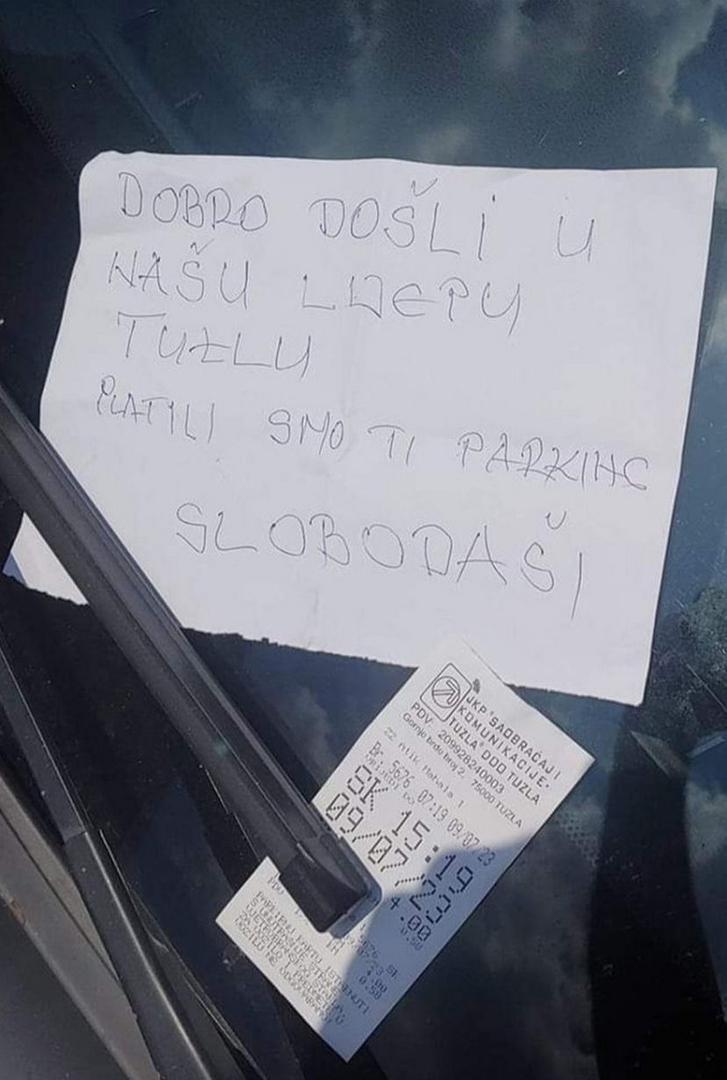 DOBRO DOŠLI U
NAŠU LIJEPU
TUZLU
PLATILI SMO TI PARKING
SLOBODAŠI
JKP "SAOBRAĆAJ I
KOMUNIKACIJE-
TUZLA" DOO TUZLA
PDV: 209926240003
Gornje brdo broj 2, 75000 TUZLA
22 Atik Mahala 1
Br 5676 07:19 09/07/23
VRIJEDI DO
SK 15:19
09/07/23
4.00
0.58
5676 SK
4.00
0.58